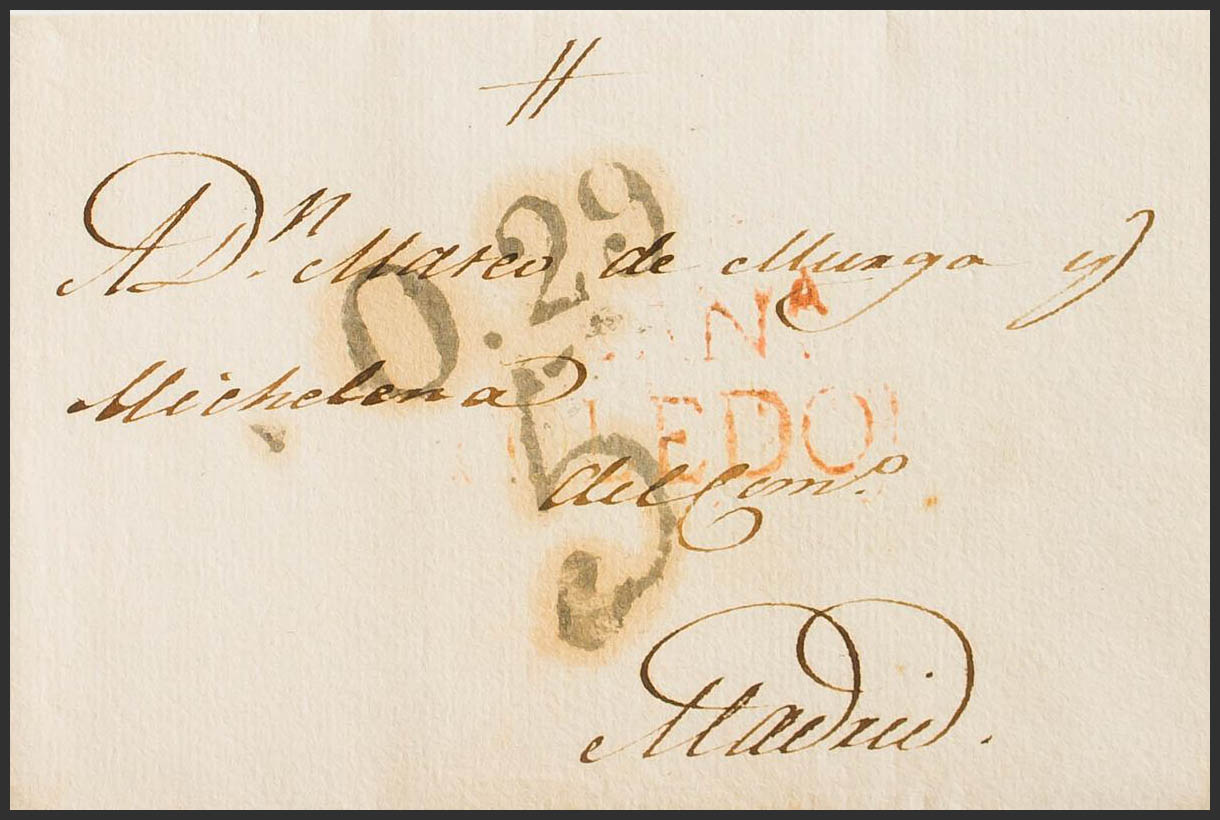 A Dn. Marco de Murga y
Michelena
del Comº.
Madrid.
O. 29
5
ANA
LEDO